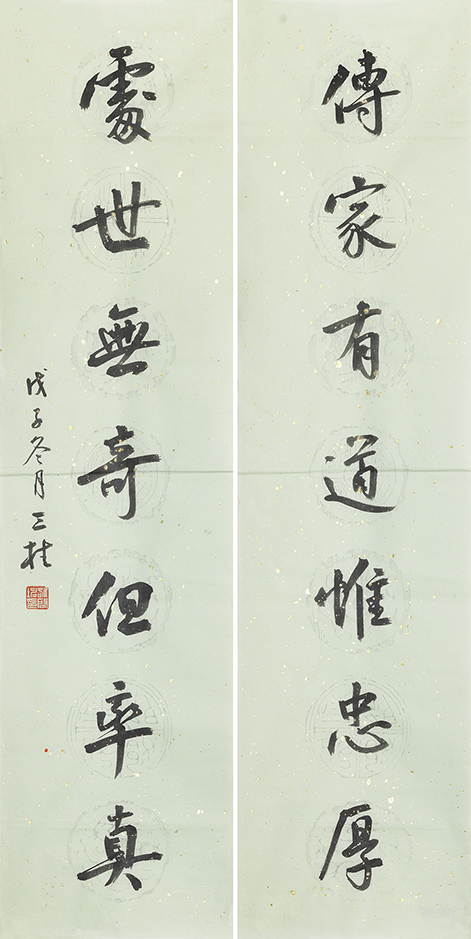 傳家有道惟忠厚
處世無奇但率真
戊子冬月三桂